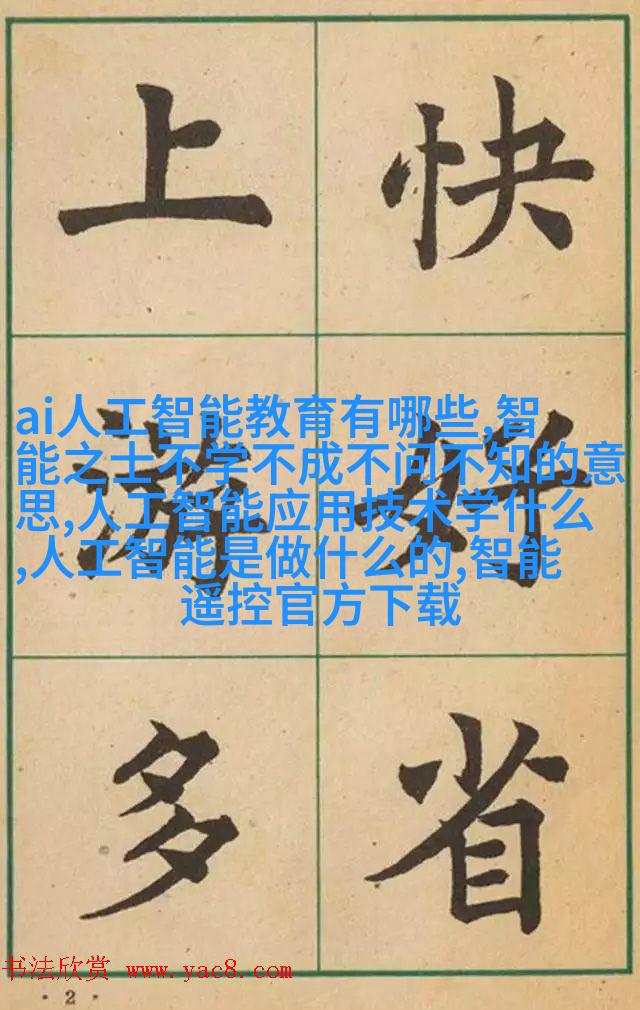 上游多
快好省
ai人工智能教育有哪些,智
能之士不学不成不问不知的意
思,人工智能应用技术学什么
,人工智能是做什么的,智能
遥控官方下载
书法欣赏 www.yac8.com
·2·